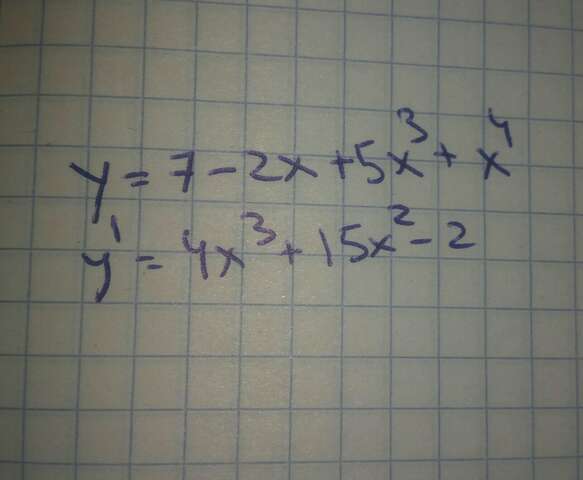 y = 7 - 2x + 5x³ + x⁴
y' = 4x³ + 15x² - 2